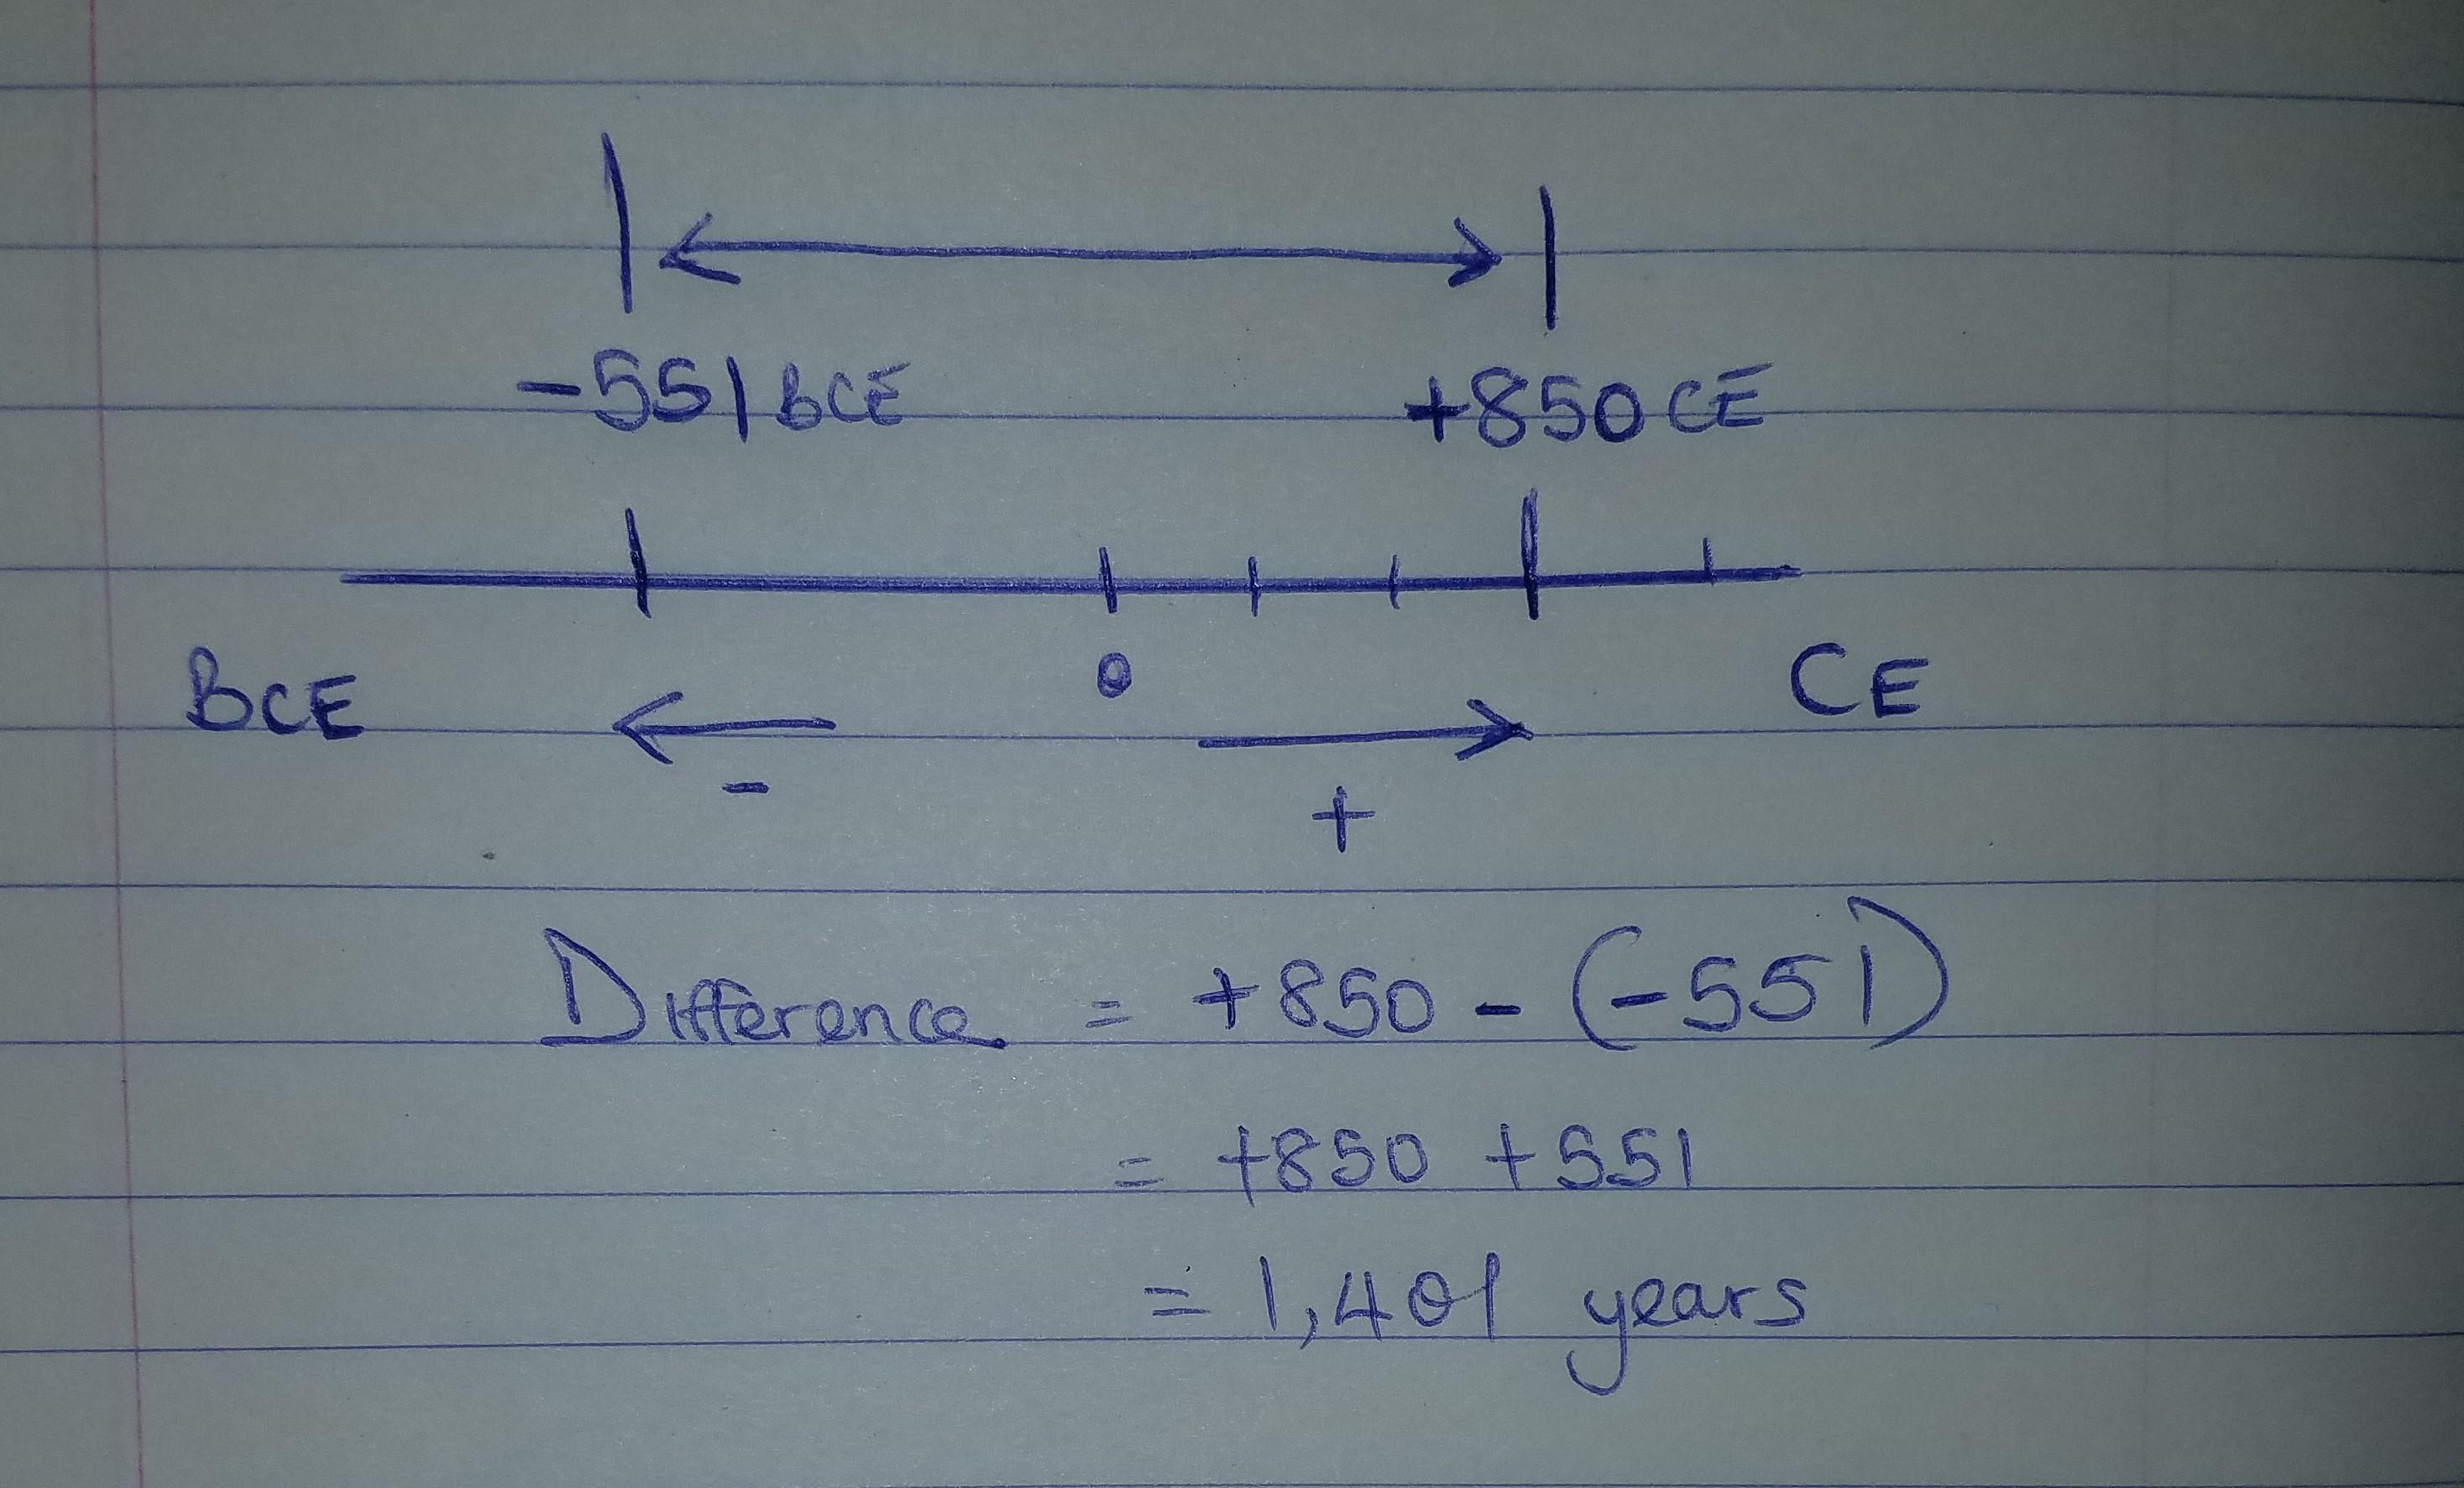 -551 BCE +850 CE
0
BCE CE
- +
Difference = +850 - (-551)
= +850 +551
= 1,401 years